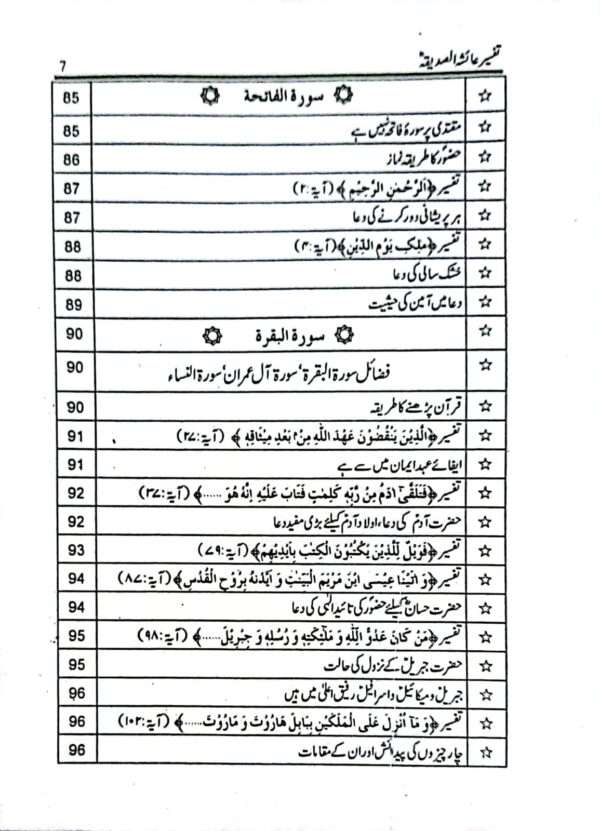 تفسیر عائشہ الصدیقہؓ 7
☆ سورۃ الفاتحۃ 85
☆ مقتدی پر سورۂ فاتحہ نہیں ہے 85
☆ حضورؐ کا طریقہ نماز 86
☆ تفسیر ﴿اَلرَّحْمٰنِ الرَّحِيْمِ﴾ (آیۃ:۲) 87
☆ ہر پریشانی دور کرنے کی دعا 87
☆ تفسیر ﴿مٰلِكِ يَوْمِ الدِّيْنِ﴾ (آیۃ:۴) 88
☆ خشک سالی کی دعا 88
☆ دعا میں آمین کی حیثیت 89
☆ سورۃ البقرۃ 90
☆ فضائل سورۃ البقرۃ، سورۃ آل عمران، سورۃ النساء 90
☆ قرآن پڑھنے کا طریقہ 90
☆ تفسیر ﴿الَّذِيْنَ يَنْقُضُوْنَ عَهْدَ اللّٰهِ مِنْۢ بَعْدِ مِيْثَاقِهٖ﴾ (آیۃ:۲۷) 91
☆ ایفائے عہد ایمان میں سے ہے 91
☆ تفسیر ﴿فَتَلَقّٰٓى اٰدَمُ مِنْ رَّبِّهٖ كَلِمٰتٍ فَتَابَ عَلَيْهِ اِنَّهٗ هُوَ ......﴾ (آیۃ:۳۷) 92
☆ حضرت آدمؑ کی دعاء، اولاد آدمؑ کیلئے بڑی مفید دعا 92
☆ تفسیر ﴿فَوَيْلٌ لِّلَّذِيْنَ يَكْتُبُوْنَ الْكِتٰبَ بِاَيْدِيْهِمْ﴾ (آیۃ:۷۹) 93
☆ تفسیر ﴿وَ اٰتَيْنَا عِيْسَى ابْنَ مَرْيَمَ الْبَيِّنٰتِ وَ اَيَّدْنٰهُ بِرُوْحِ الْقُدُسِ﴾ (آیۃ:۸۷) 94
☆ حضرت حسانؓ کیلئے حضورؐ کی تائید الٰہی کی دعا 94
☆ تفسیر ﴿مَنْ كَانَ عَدُوًّا لِّلّٰهِ وَ مَلٰٓئِكَتِهٖ وَ رُسُلِهٖ وَ جِبْرِيْلَ ......﴾ (آیۃ:۹۸) 95
☆ حضرت جبریلؑ کے نزول کی حالت 95
☆ جبریل و میکائیل و اسرافیل رفیق اعلیٰ میں ہیں 96
☆ تفسیر ﴿وَ مَآ اُنْزِلَ عَلَى الْمَلَكَيْنِ بِبَابِلَ هَارُوْتَ وَ مَارُوْتَ ......﴾ (آیۃ:۱۰۲) 96
☆ چار چیزوں کی پیدائش اور ان کے مقامات 96